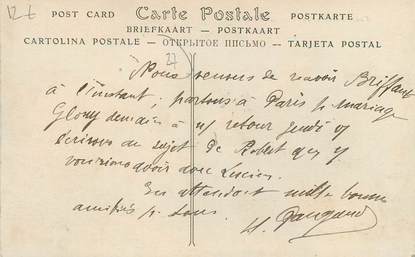 12 f
POST CARD Carte Postale POSTKARTE
BRIEFKAART — POSTKAART
CARTOLINA POSTALE — ОТКРЫТОЕ ПИСЬМО — TARJETA POSTAL
27
Nous venons de revoir Briffaut
à l'instant, partons à Paris p. mariage
demain à n/ retour jeudi
de sujet de
voudrions avoir avec Lucien.
En attendant mille bonnes
amitiés p. tous.